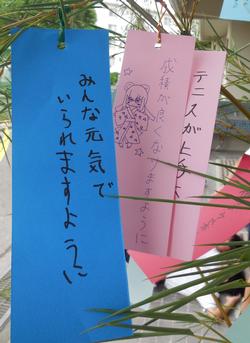 みんな元気で
いられますように
成績が良くなりますように
テニスが上手